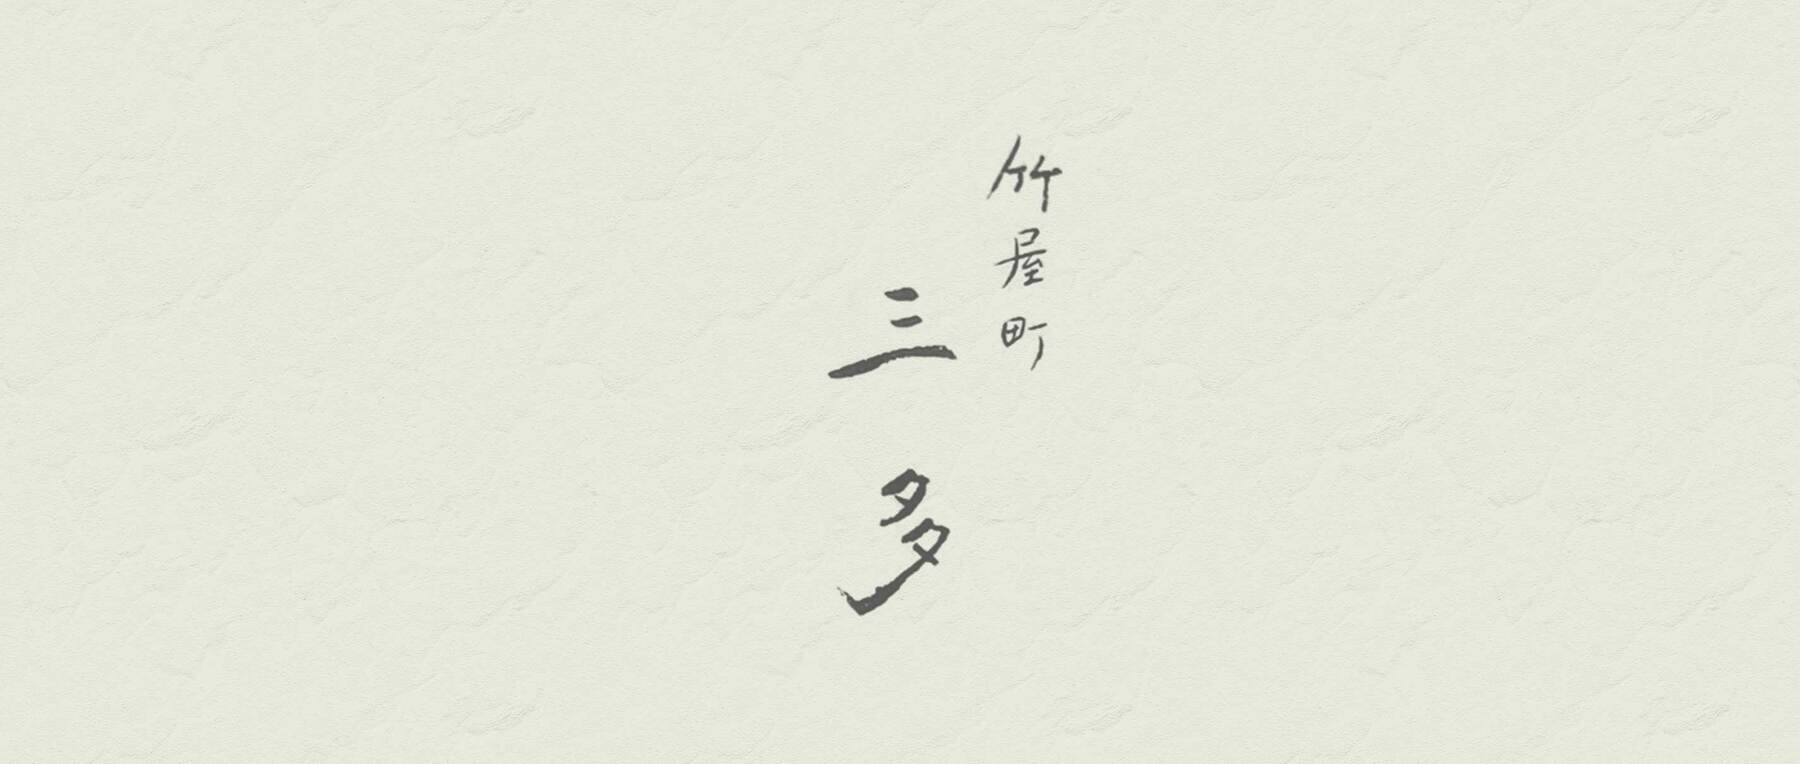 竹屋町
三多